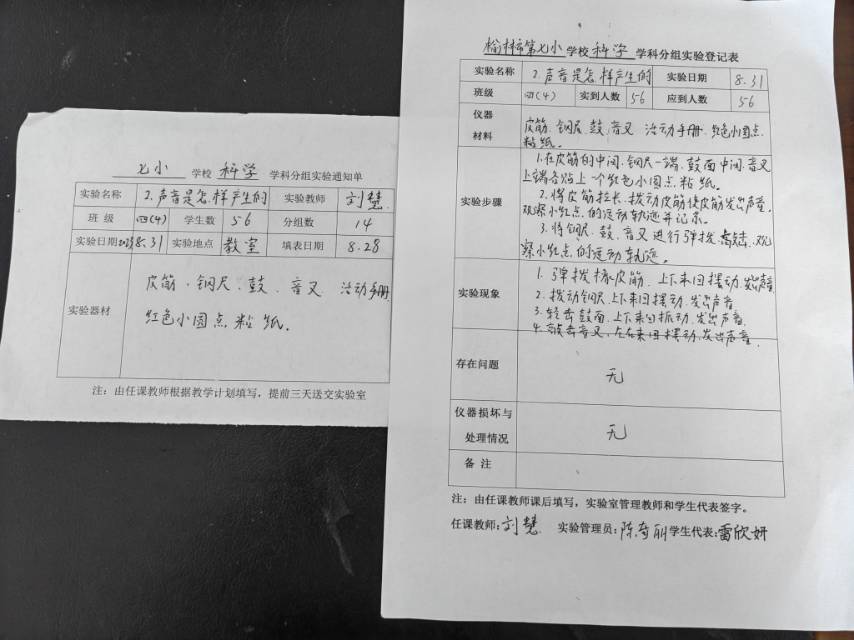 七小 学校 科学 学科分组实验通知单
实验名称 2.声音是怎样产生的 实验教师 刘慧
班 级 四(4) 学生数 56 分组数 14
实验日期 8.31 实验地点 教室 填表日期 8.28
实验器材
皮筋、钢尺、鼓、音叉 活动手册
红色小圆点粘纸.
注：由任课教师根据教学计划填写，提前三天送交实验室
榆林市第七小 学校 科学 学科分组实验登记表
实验名称 2.声音是怎样产生的 实验日期 8.31
班级 四(4) 实到人数 56 应到人数 56
仪器
材料
皮筋、钢尺、鼓、音叉 活动手册、红色小圆点
粘纸.
实验步骤
1.在皮筋的中间、钢尺一端、鼓面中间、音叉
上端各贴上一个红色小圆点粘纸.
2.将皮筋拉长、拨动皮筋使皮筋发出声音,
观察小红点的运动轨迹并记录.
3.将钢尺、鼓、音叉进行弹拨、敲击、观
察小红点的运动轨迹.
实验现象
1.弹拨橡皮筋,上下来回摆动,发出声音
2.拨动钢尺,上下来回摆动,发出声音
3.轻击鼓面,上下来回振动,发出声音.
4.敲击音叉,左右来回摆动,发出声音.
存在问题 无
仪器损坏与
处理情况
无
备 注
注：由任课教师课后填写，实验室管理教师和学生代表签字。
任课教师:刘慧 实验管理员:陈奇丽 学生代表:雷欣妍